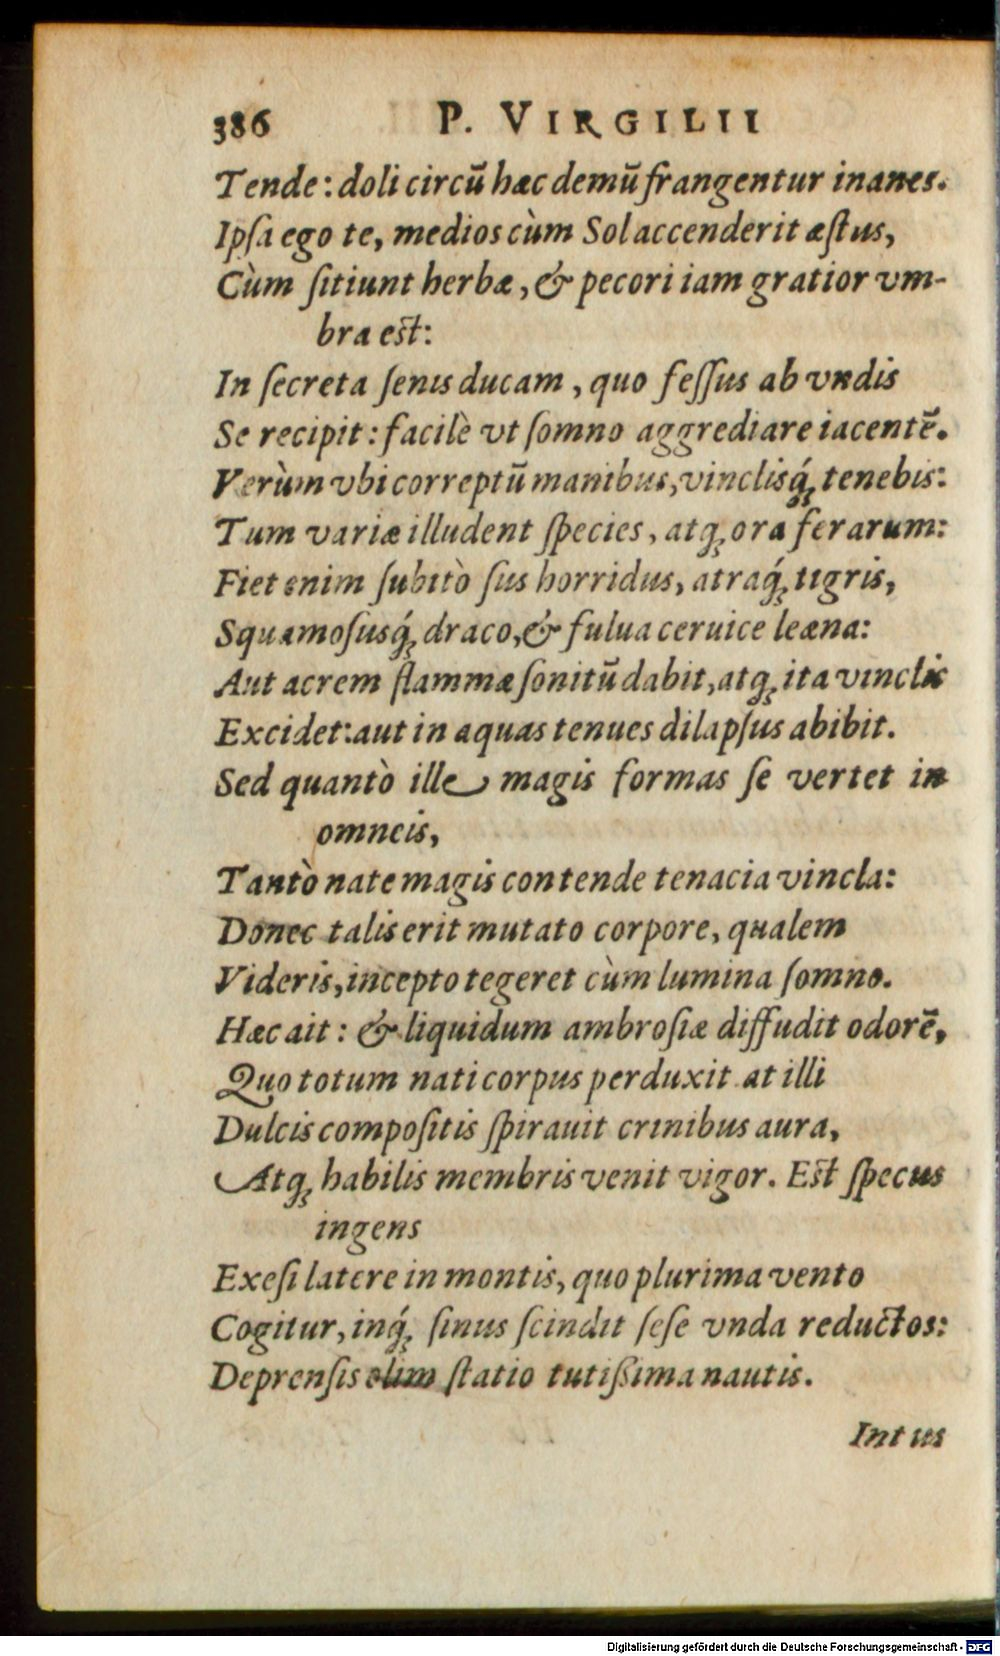 386 P. VIRGILII
Tende: doli circũ hæc demũ frangentur inanes.
Ipſa ego te, medios cùm Sol accenderit æſtus,
Cùm ſitiunt herbæ, & pecori iam gratior vm-
bra eſt:
In ſecreta ſenis ducam, quo feſſus ab vndis
Se recipit: facilè vt ſomno aggrediare iacentẽ.
Verùm vbi correptũ manibus, vinclisq́; tenebis:
Tum variæ illudent ſpecies, atq; ora ferarum:
Fiet enim ſubitò ſus horridus, atraq́; tigris,
Squamoſusq́; draco, & fulua ceruice leæna:
Aut acrem flammæ ſonitũ dabit, atq; ita vinclis
Excidet: aut in aquas tenues dilapſus abibit.
Sed quantò ille magis formas ſe vertet in
omneis,
Tantò nate magis contende tenacia vincla:
Donec talis erit mutato corpore, qualem
Videris, incepto tegeret cùm lumina ſomno.
Hæc ait: & liquidum ambroſiæ diffudit odorẽ,
Quo totum nati corpus perduxit at illi
Dulcis compoſitis ſpirauit crinibus aura,
Atq; habilis membris venit vigor. Eſt ſpecus
ingens
Exeſi latere in montis, quo plurima vento
Cogitur, inq́; ſinus ſcindit ſeſe vnda reductos:
Deprenſis olim ſtatio tutißima nautis.
Intus
Digitalisierung gefördert durch die Deutsche Forschungsgemeinschaft - DFG